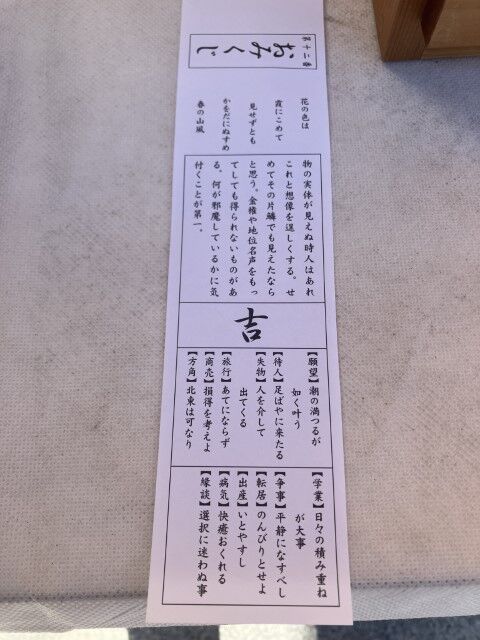 第十二番
おみくじ
花の色は
霞にこめて
見せずとも
かをだにぬすめ
春の山風
物の実体が見えぬ時人はあれ
これと想像を逞しくする。せ
めてその片鱗でも見えたなら
と思う。金権や地位名声をもっ
てしても得られないものがあ
る。何が邪魔しているかに気
付くことが第一。
吉
【願望】潮の満つるが
如く叶う
【待人】足ばやに来たる
【失物】人を介して
出てくる
【旅行】あてにならず
【商売】損得を考えよ
【方角】北東は可なり
【学業】日々の積み重ね
が大事
【争事】平静になすべし
【転居】のんびりとせよ
【出産】いとやすし
【病気】快癒おくれる
【縁談】選択に迷わぬ事